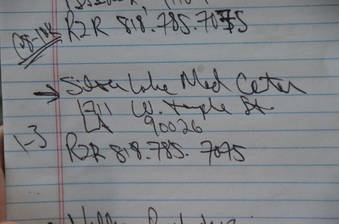 R2R 818.785.7075
Silver Lake Med Center
1711 W. Temple St.
90026
1-3
R2R 818.785.7075